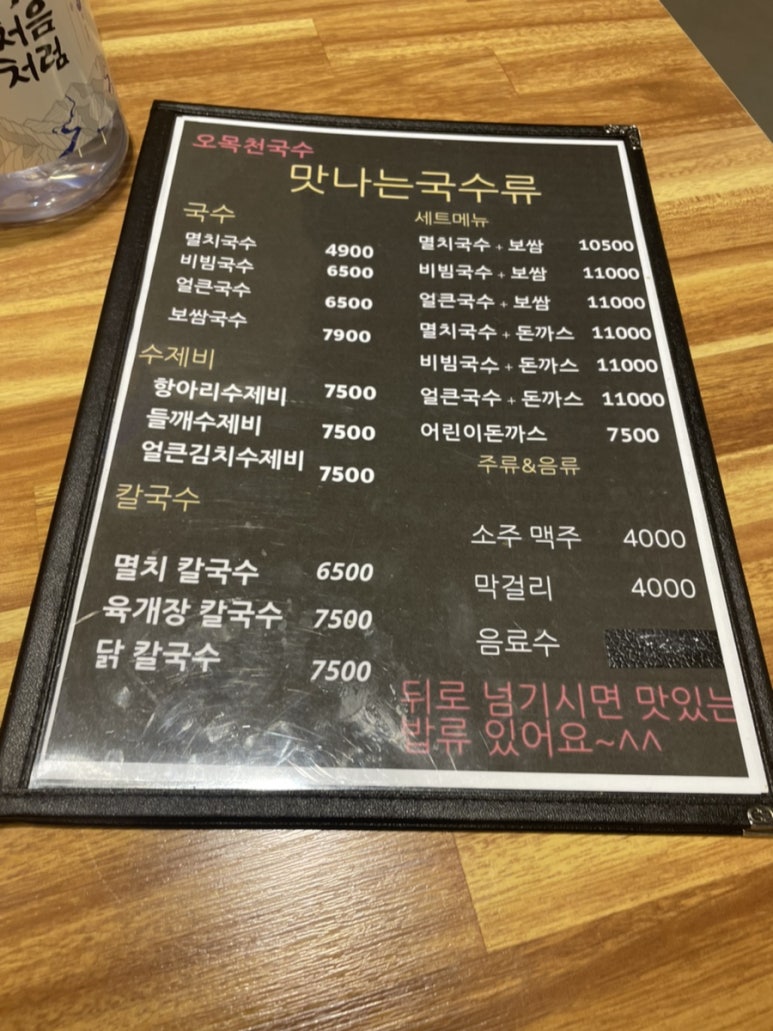 처음
처럼
오목천국수
맛나는국수류
국수
멸치국수 4900
비빔국수 6500
얼큰국수 6500
보쌈국수 7900
수제비
항아리수제비 7500
들깨수제비 7500
얼큰김치수제비 7500
칼국수
멸치 칼국수 6500
육개장 칼국수 7500
닭 칼국수 7500
세트메뉴
멸치국수 + 보쌈 10500
비빔국수 + 보쌈 11000
얼큰국수 + 보쌈 11000
멸치국수 + 돈까스 11000
비빔국수 + 돈까스 11000
얼큰국수 + 돈까스 11000
어린이돈까스 7500
주류&음류
소주 맥주 4000
막걸리 4000
음료수
뒤로 넘기시면 맛있는
밥류 있어요~^^